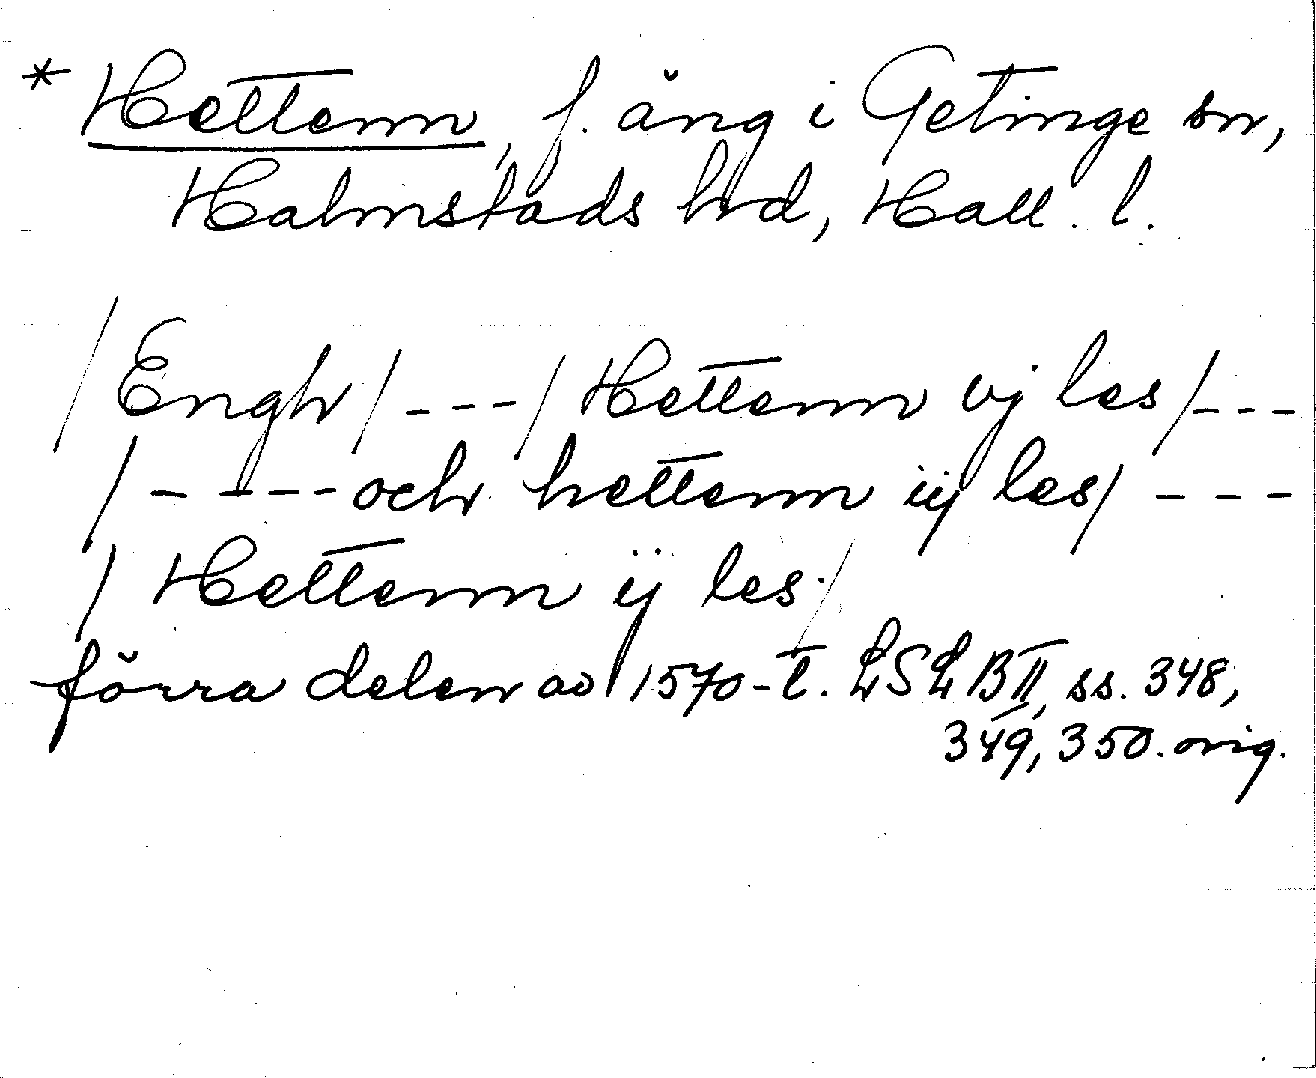 * Hettenn, f. äng i Getinge sn,
Halmstads hd, Hall. l.
/Engh/ ---/ Hettenn vj les/---
/ ---- och hettenn iij les/ ---
/ Hettenn ij les./
förra delen av 1570-t. LSLB II, ss. 348,
349, 350. orig.